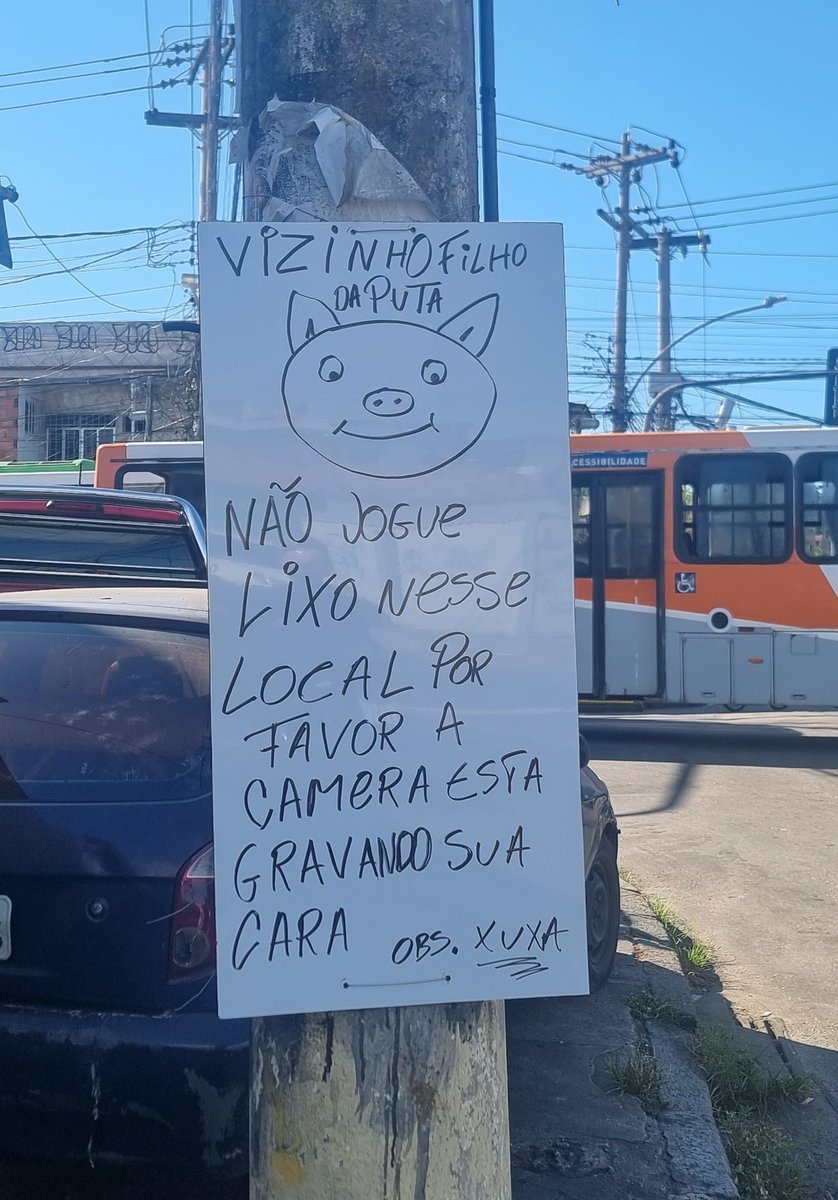 VIZINHO FILHO
DA PUTA
NÃO JOGUE
LIXO NESSE
LOCAL POR
FAVOR A
CAMERA ESTA
GRAVANDO SUA
CARA OBS. XUXA
CESSIBILIDADE